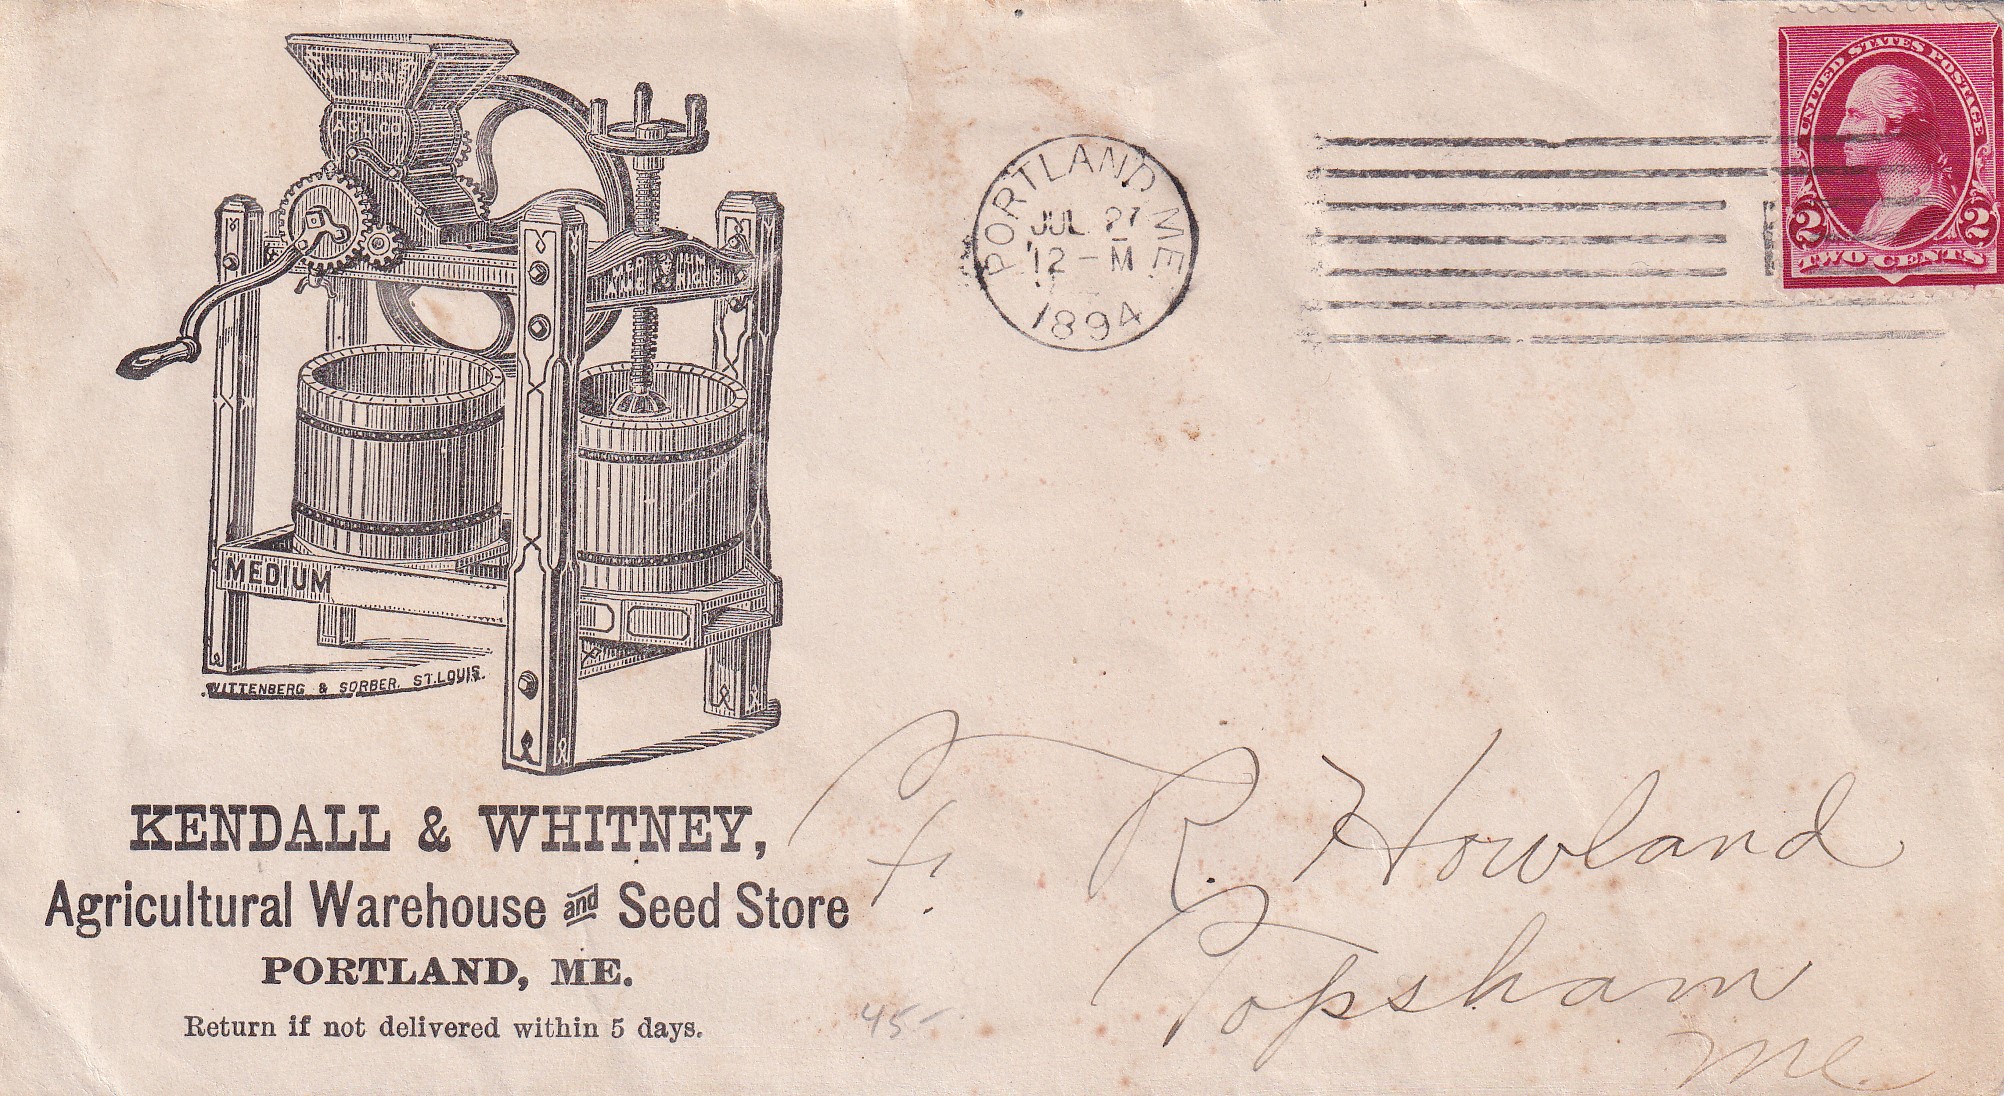 WHITMAN'S
AGRL CO.
AMERICAN
MEDIUM
WITTENBERG & SORBER, ST. LOUIS.
KENDALL & WHITNEY,
Agricultural Warehouse and Seed Store
PORTLAND, ME.
Return if not delivered within 5 days.
PORTLAND, ME.
JUL 27
12 - M
1894
UNITED STATES POSTAGE
2 2
TWO CENTS
F. R. Howland
Topsham
Me.
45-